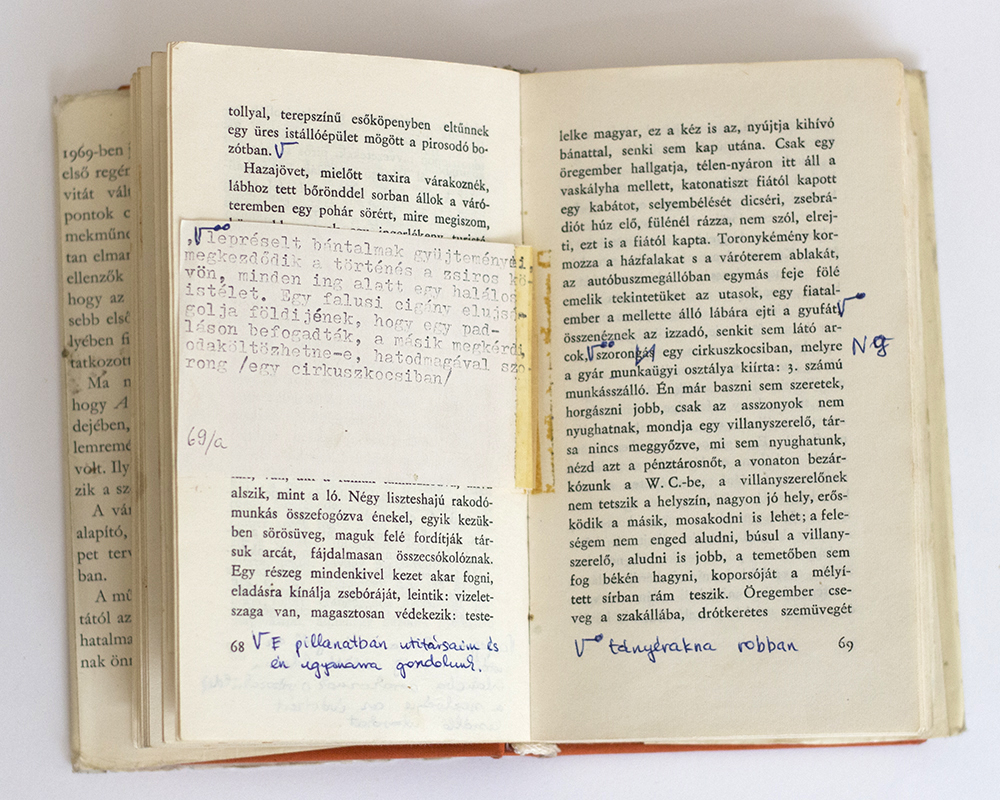 1969-ben
első regér
vitát vált
pontok
mekműn
tan elmar
ellenzők
hogy az
sebb első
lyében
tatkozott
Ma
hogy A
dejében,
lemremé
volt. Ily
zik a sz
A vár
alapító,
pet terv
ban.
A mű
tától az
hatalma
nak önr
tollyal, terepszínű esőköpenyben eltűnnek
egy üres istállóépület mögött a pirosodó bo-
zótban. V
Hazajövet, mielőtt taxira várakoznék,
lábhoz tett bőrönddel sorban állok a váró-
teremben egy pohár sörért, mire megiszom,
lepréselt bántalmak gyüjteményei,
megkezdődik a történés a zsiros kö-
vön, minden ing alatt egy halálos
istélet. Egy falusi cigány elujsá-
golja földijének, hogy egy pad-
láson befogadták, a másik megkérdi
odaköltözhetne-e, hatodmagával szo-
rong /egy cirkuszkocsiban/
69/a
alszik, mint a ló. Négy liszteshajú rakodó-
munkás összefogózva énekel, egyik kezük-
ben sörösüveg, maguk felé fordítják tár-
suk arcát, fájdalmasan összecsókolóznak.
Egy részeg mindenkivel kezet akar fogni,
eladásra kínálja zsebóráját, leintik: vizelet-
szaga van, magasztosan védekezik: teste-
68 V E pillanatban utitársaim és
én ugyanarra gondolunk.
lelke magyar, ez a kéz is az, nyújtja kihívó
bánattal, senki sem kap utána. Csak egy
öregember hallgatja, télen-nyáron itt áll a
vaskályha mellett, katonatiszt fiától kapott
egy kabátot, selyembélését dicséri, zsebrá-
diót húz elő, fülénél rázza, nem szól, elrej-
ti, ezt is a fiától kapta. Toronykémény kor-
mozza a házfalakat s a váróterem ablakát,
az autóbuszmegállóban egymás feje fölé
emelik tekintetüket az utasok, egy fiatal-
ember a mellette álló lábára ejti a gyufát, V
összenéznek az izzadó, senkit sem látó ar-
cok, V szorongás egy cirkuszkocsiban, melyre
a gyár munkaügyi osztálya kiírta: 3. számú
munkásszálló. Én már baszni sem szeretek,
horgászni jobb, csak az asszonyok nem
nyughatnak, mondja egy villanyszerelő, tár-
sa nincs meggyőzve, mi sem nyughatunk,
nézd azt a pénztárosnőt, a vonaton bezár-
kózunk a W. C.-be, a villanyszerelőnek
nem tetszik a helyszín, nagyon jó hely, erős-
ködik a másik, mosakodni is lehet; a fele-
ségem nem enged aludni, búsul a villany-
szerelő, aludni is jobb, a temetőben sem
fog békén hagyni, koporsóját a mélyí-
tett sírban rám teszik. Öregember cse-
veg a szakállába, drótkeretes szemüvegét
V tányérakna robban 69